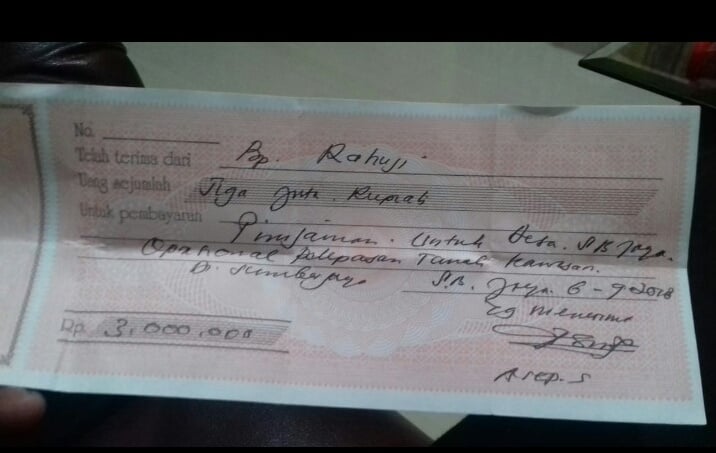 No.
Telah terima dari Bp. Rahuji
Uang sejumlah Tiga Juta. Rupiah
Untuk pembayaran Pinjaman. Untuk Desa. S.B Jaya.
Oprasional Pelepasan Tanah Kawasan.
D. Sumberjaya S.B. Jaya. 6-9-2018
Yg menerima
Rp. 3.000.000
Asep. S